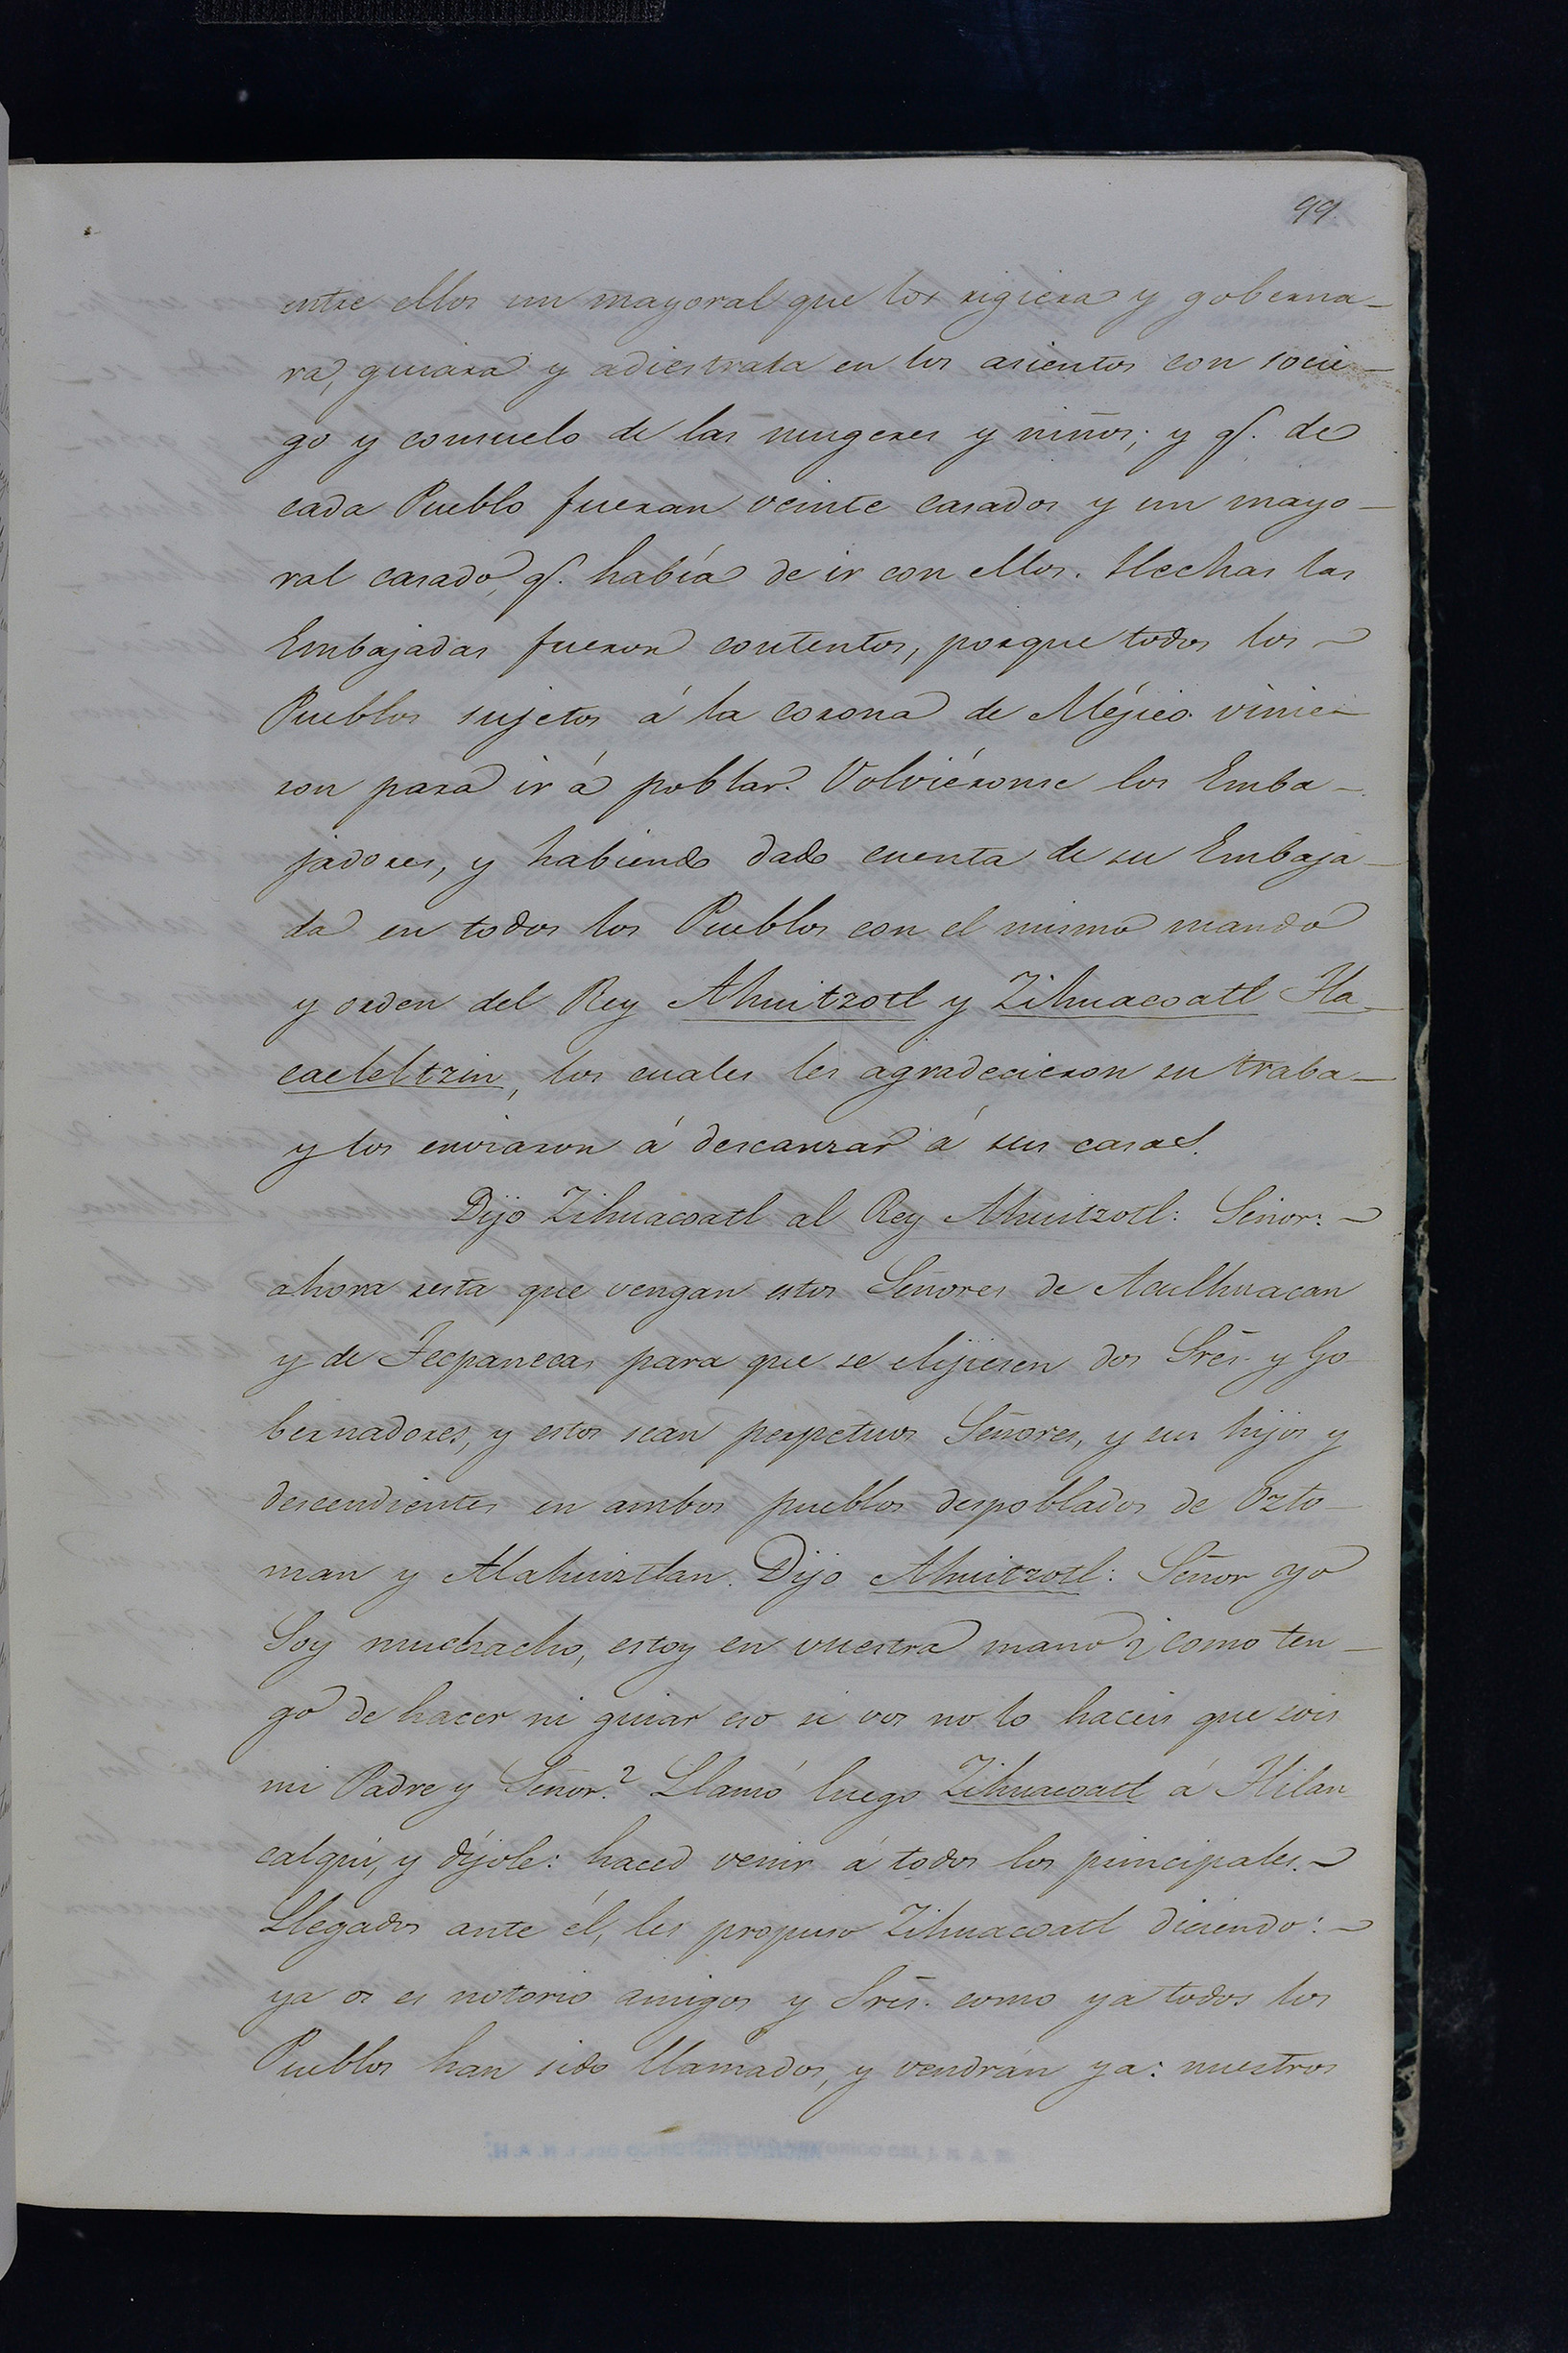 99.
entre ellos un mayoral que los rigiera y goberna-
ra, guiara y adiestrata en los asientos con socie-
go y consuelo de las mugeres y niños; y q.e de
cada Pueblo fueran veinte casados y un mayo-
ral casado, q.e había de ir con ellos. Hechas las
Embajadas fueron contentos, porque todos los
Pueblos sujetos á la corona de Méjico vinie-
ron para ir á poblar. Volviéronse los Emba-
jadores, y habiendo dado cuenta de su Embaja-
da en todos los Pueblos con el mismo mando
y orden del Rey Ahuitzotl y Zihuacoatl Tla-
caeleltzin, los cuales les agradecieron su traba-
y los enviaron á descanzar á sus casas.
Dijo Zihuacoatl al Rey Ahuitzotl: Señor:
ahora resta que vengan estos Señores de Aculhuacan
y de Tecpanecas para que se elijiesen dos Sres. y Go-
bernadores, y estos sean perpetuos Señores, y sus hijos y
descendientes en ambos pueblos despoblados de Ozto-
man y Alahuiztlan. Dijo Ahuitzotl: Señor yo
Soy muchacho, estoy en vuestra mano ¿como ten-
go de hacer ni guiar eso si vos no lo haceis que sois
mi Padre y Señor? Llamó luego Zihuacoatl á Tlilan
calqui, y díjole: haced venir á todos los principales.
Llegados ante él, les propuso Zihuacoatl diciendo:
ya os es notorio amigos y Sres. como ya todos los
Pueblos han sido llamados, y vendrán ya: nuestros